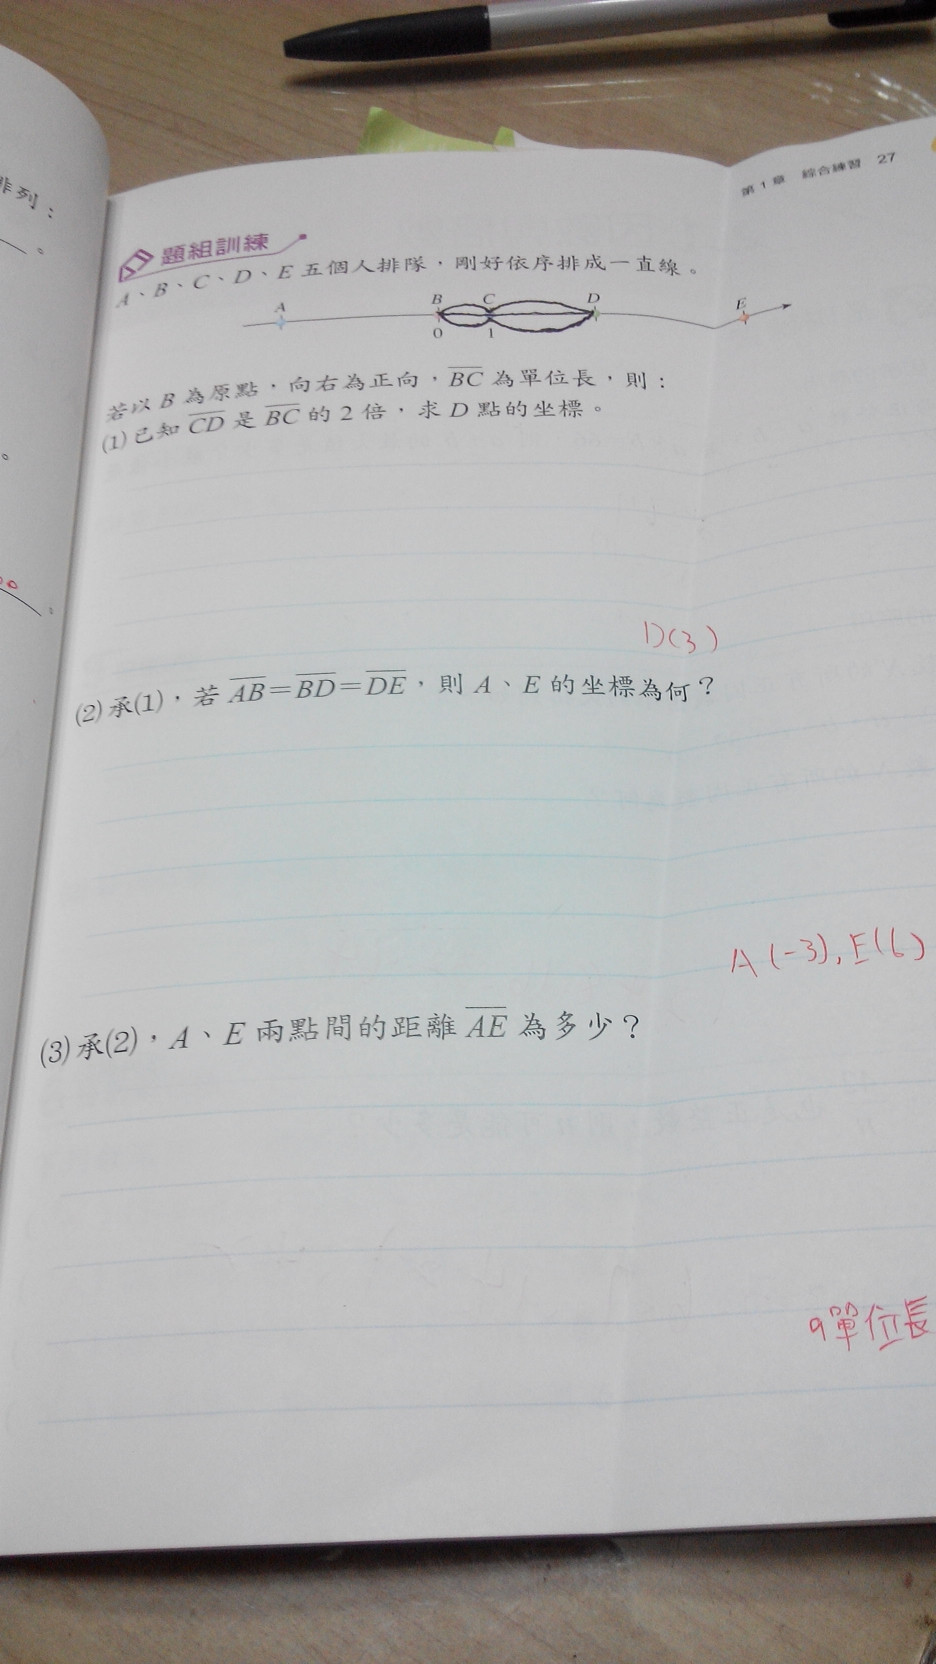 第1章 綜合練習 27
非列：
。
題組訓練
A、B、C、D、E 五個人排隊，剛好依序排成一直線。
A B C D E
0 1
若以 B 為原點，向右為正向，BC 為單位長，則：
(1)已知 CD 是 BC 的 2 倍，求 D 點的坐標。
D(3)
(2)承(1)，若 AB＝BD＝DE，則 A、E 的坐標為何？
A(-3), E(6)
(3)承(2)，A、E 兩點間的距離 AE 為多少？
9單位長